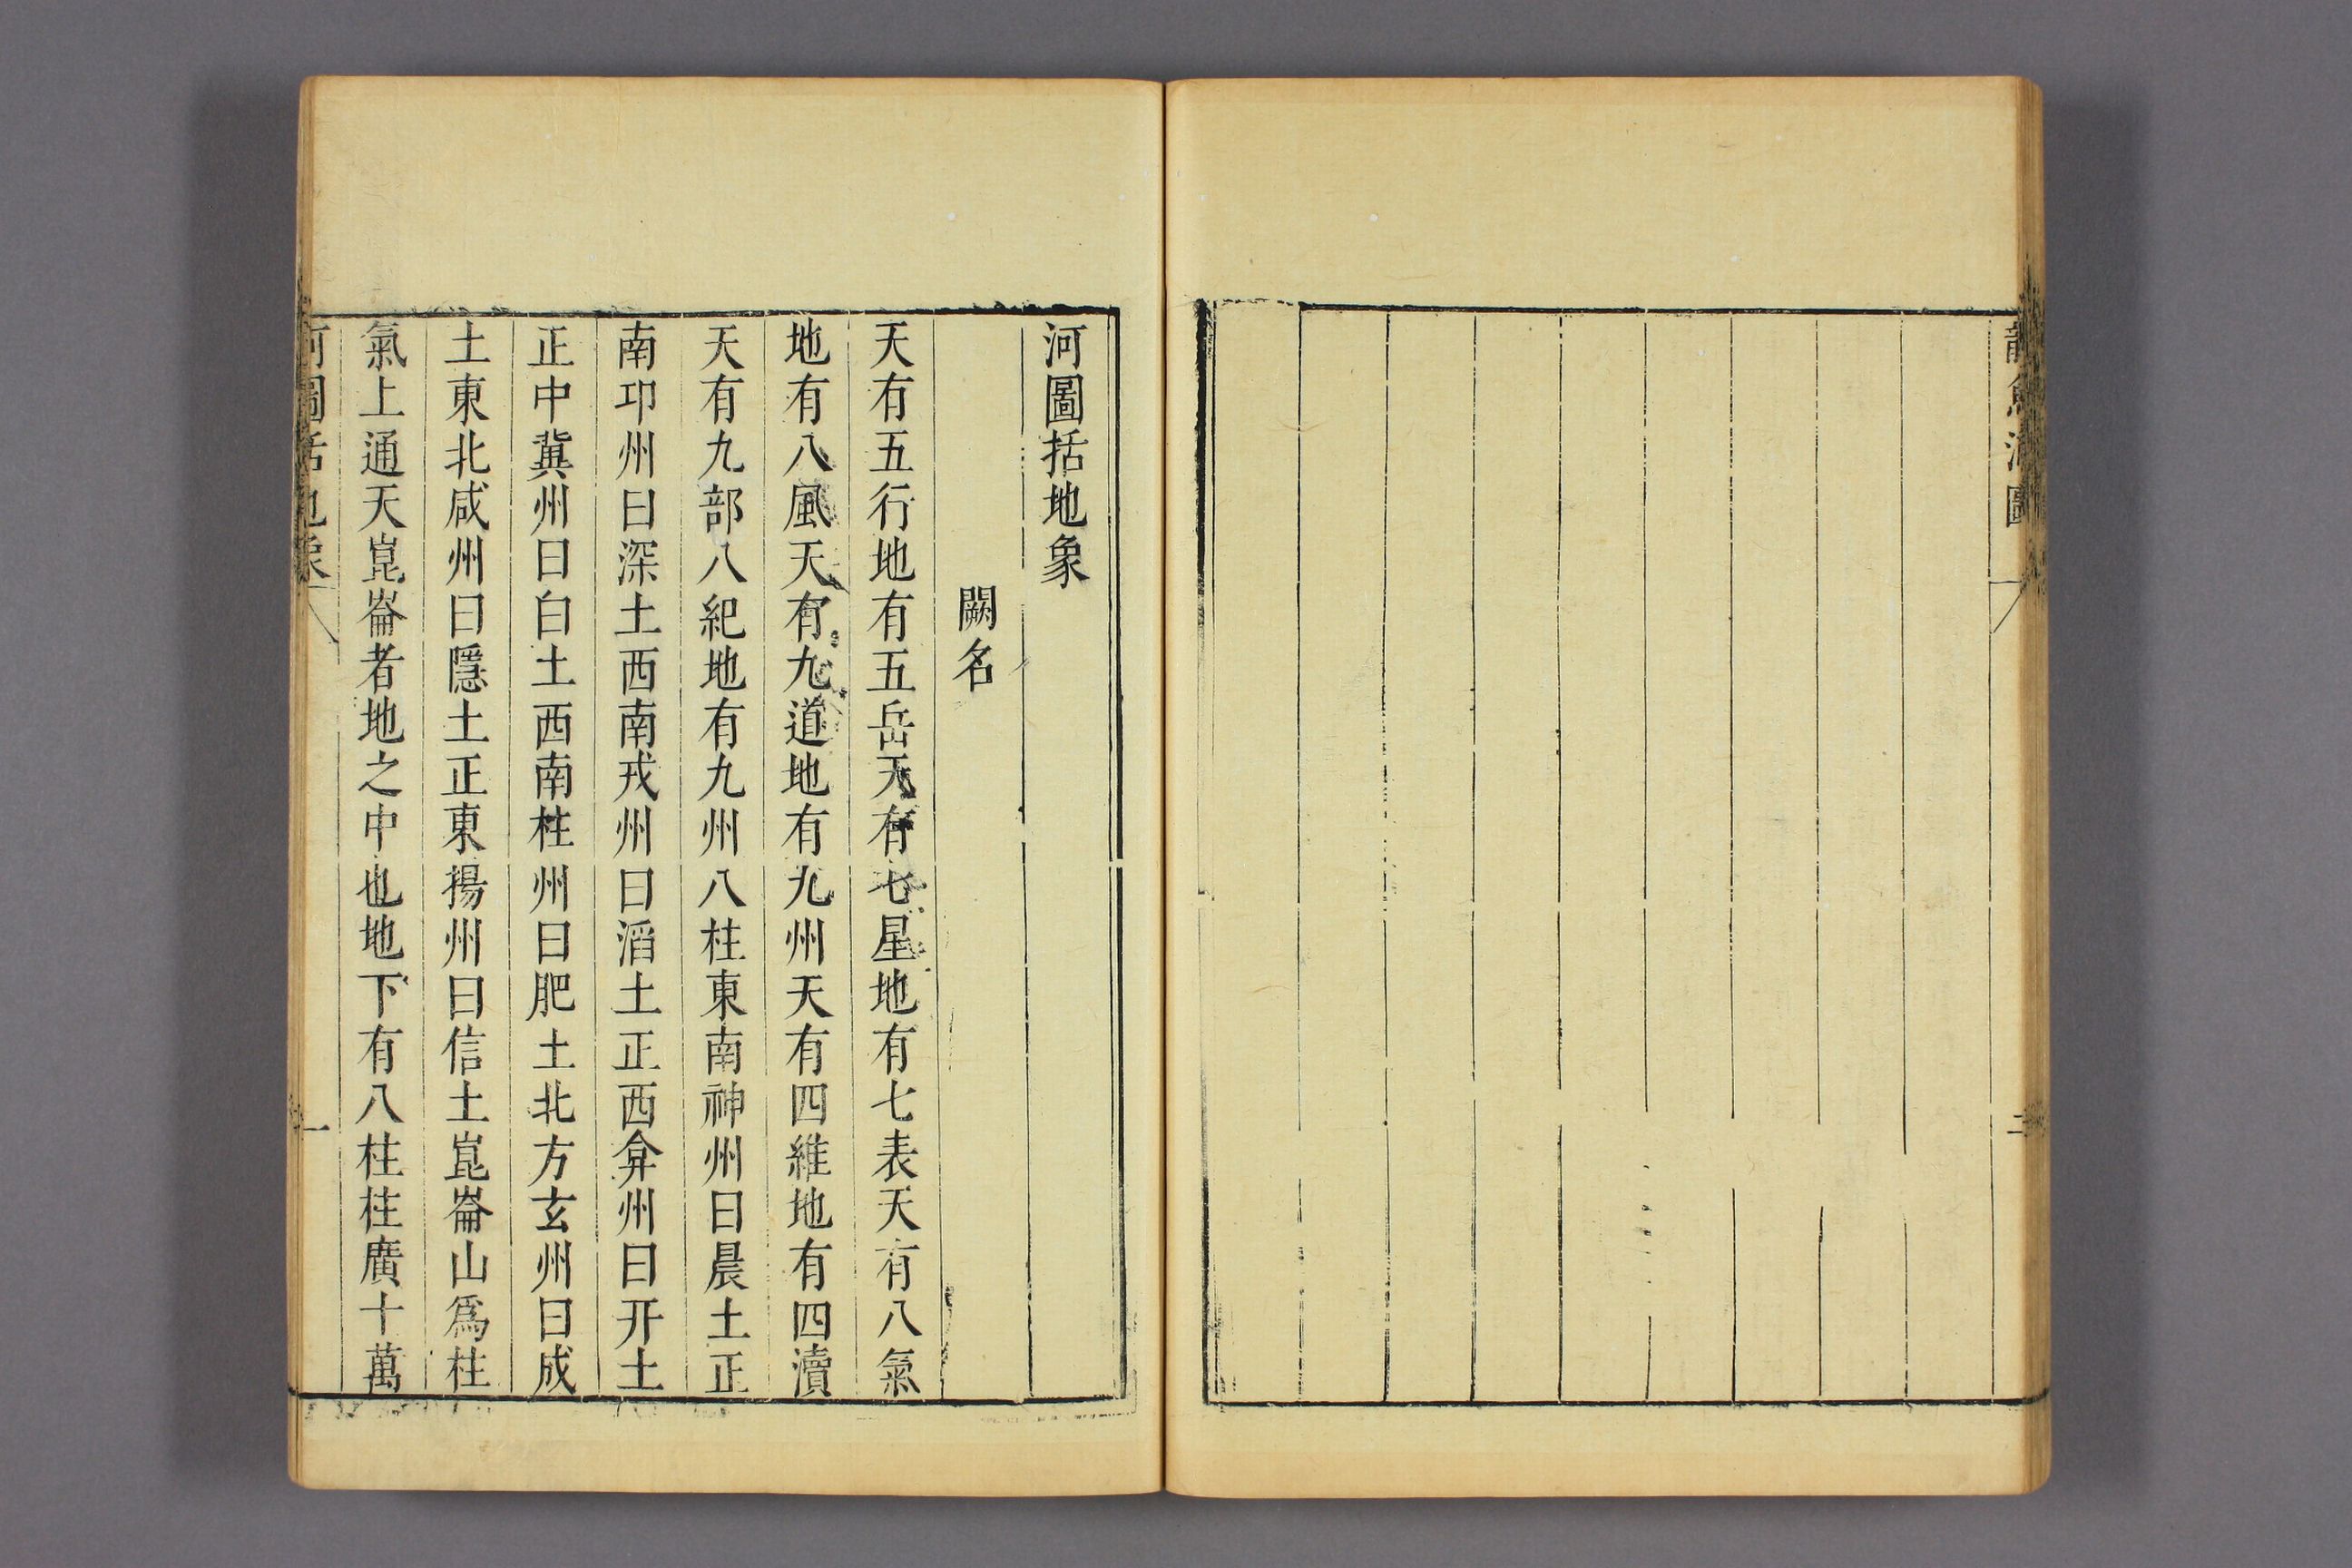 二
河圖括地象
闕名
天有五行地有五岳天有七星地有七表天有八氣
地有八風天有九道地有九州天有四維地有四瀆
天有九部八紀地有九州八柱東南神州曰晨土正
南卬州曰深土西南戎州曰滔土正西弇州曰幵土
正中冀州曰白土西南柱州曰肥土北方玄州曰成
土東北咸州曰隱土正東揚州曰信土崑崙山爲柱
氣上通天崑崙者地之中也地下有八柱柱廣十萬
河圖括地象
一